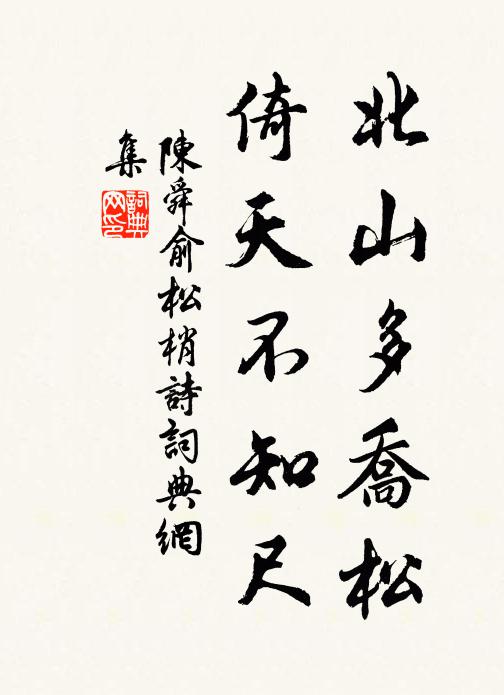 北山多喬松
倚天不知尺
陳舜俞松梢詩詞典網
集
詞典
网印